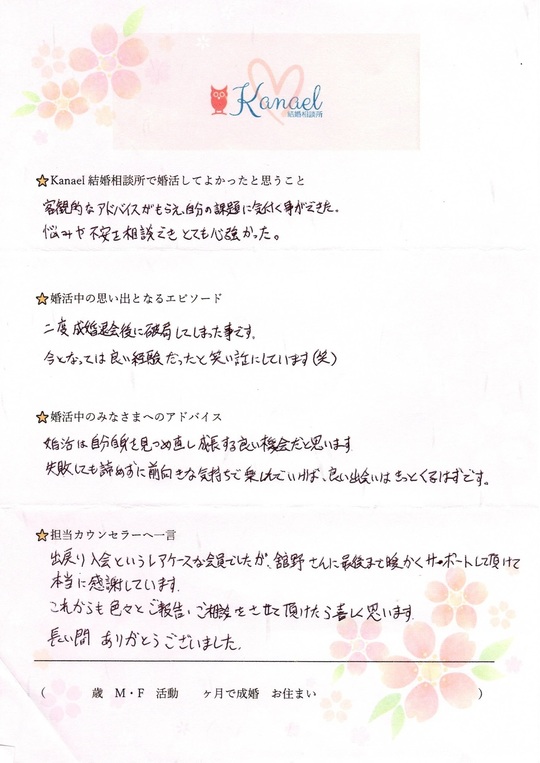 Kanael
結婚相談所
Kanael 結婚相談所で婚活してよかったと思うこと
客観的なアドバイスがもらえ、自分の課題に気付く事ができた。
悩みや不安を相談できとても心強かった。
婚活中の思い出となるエピソード
二度成婚退会後に破局してしまった事です。
今となっては良い経験だったと笑い話にしています(笑)
婚活中のみなさまへのアドバイス
婚活は自分自身を見つめ直し成長する良い機会だと思います
失敗しても諦めずに前向きな気持ちで楽しんでいけば、良い出会いはきっとくるはずです。
担当カウンセラーへ一言
出戻り入会というレアケースな会員でしたが、舘野さんに最後まで暖かくサポートして頂けて
本当に感謝しています。
これからも色々とご報告、ご相談をさせて頂けたら喜しく思います。
長い間 ありがとうございました。
( 歳 M・F 活動 ヶ月で成婚 お住まい )